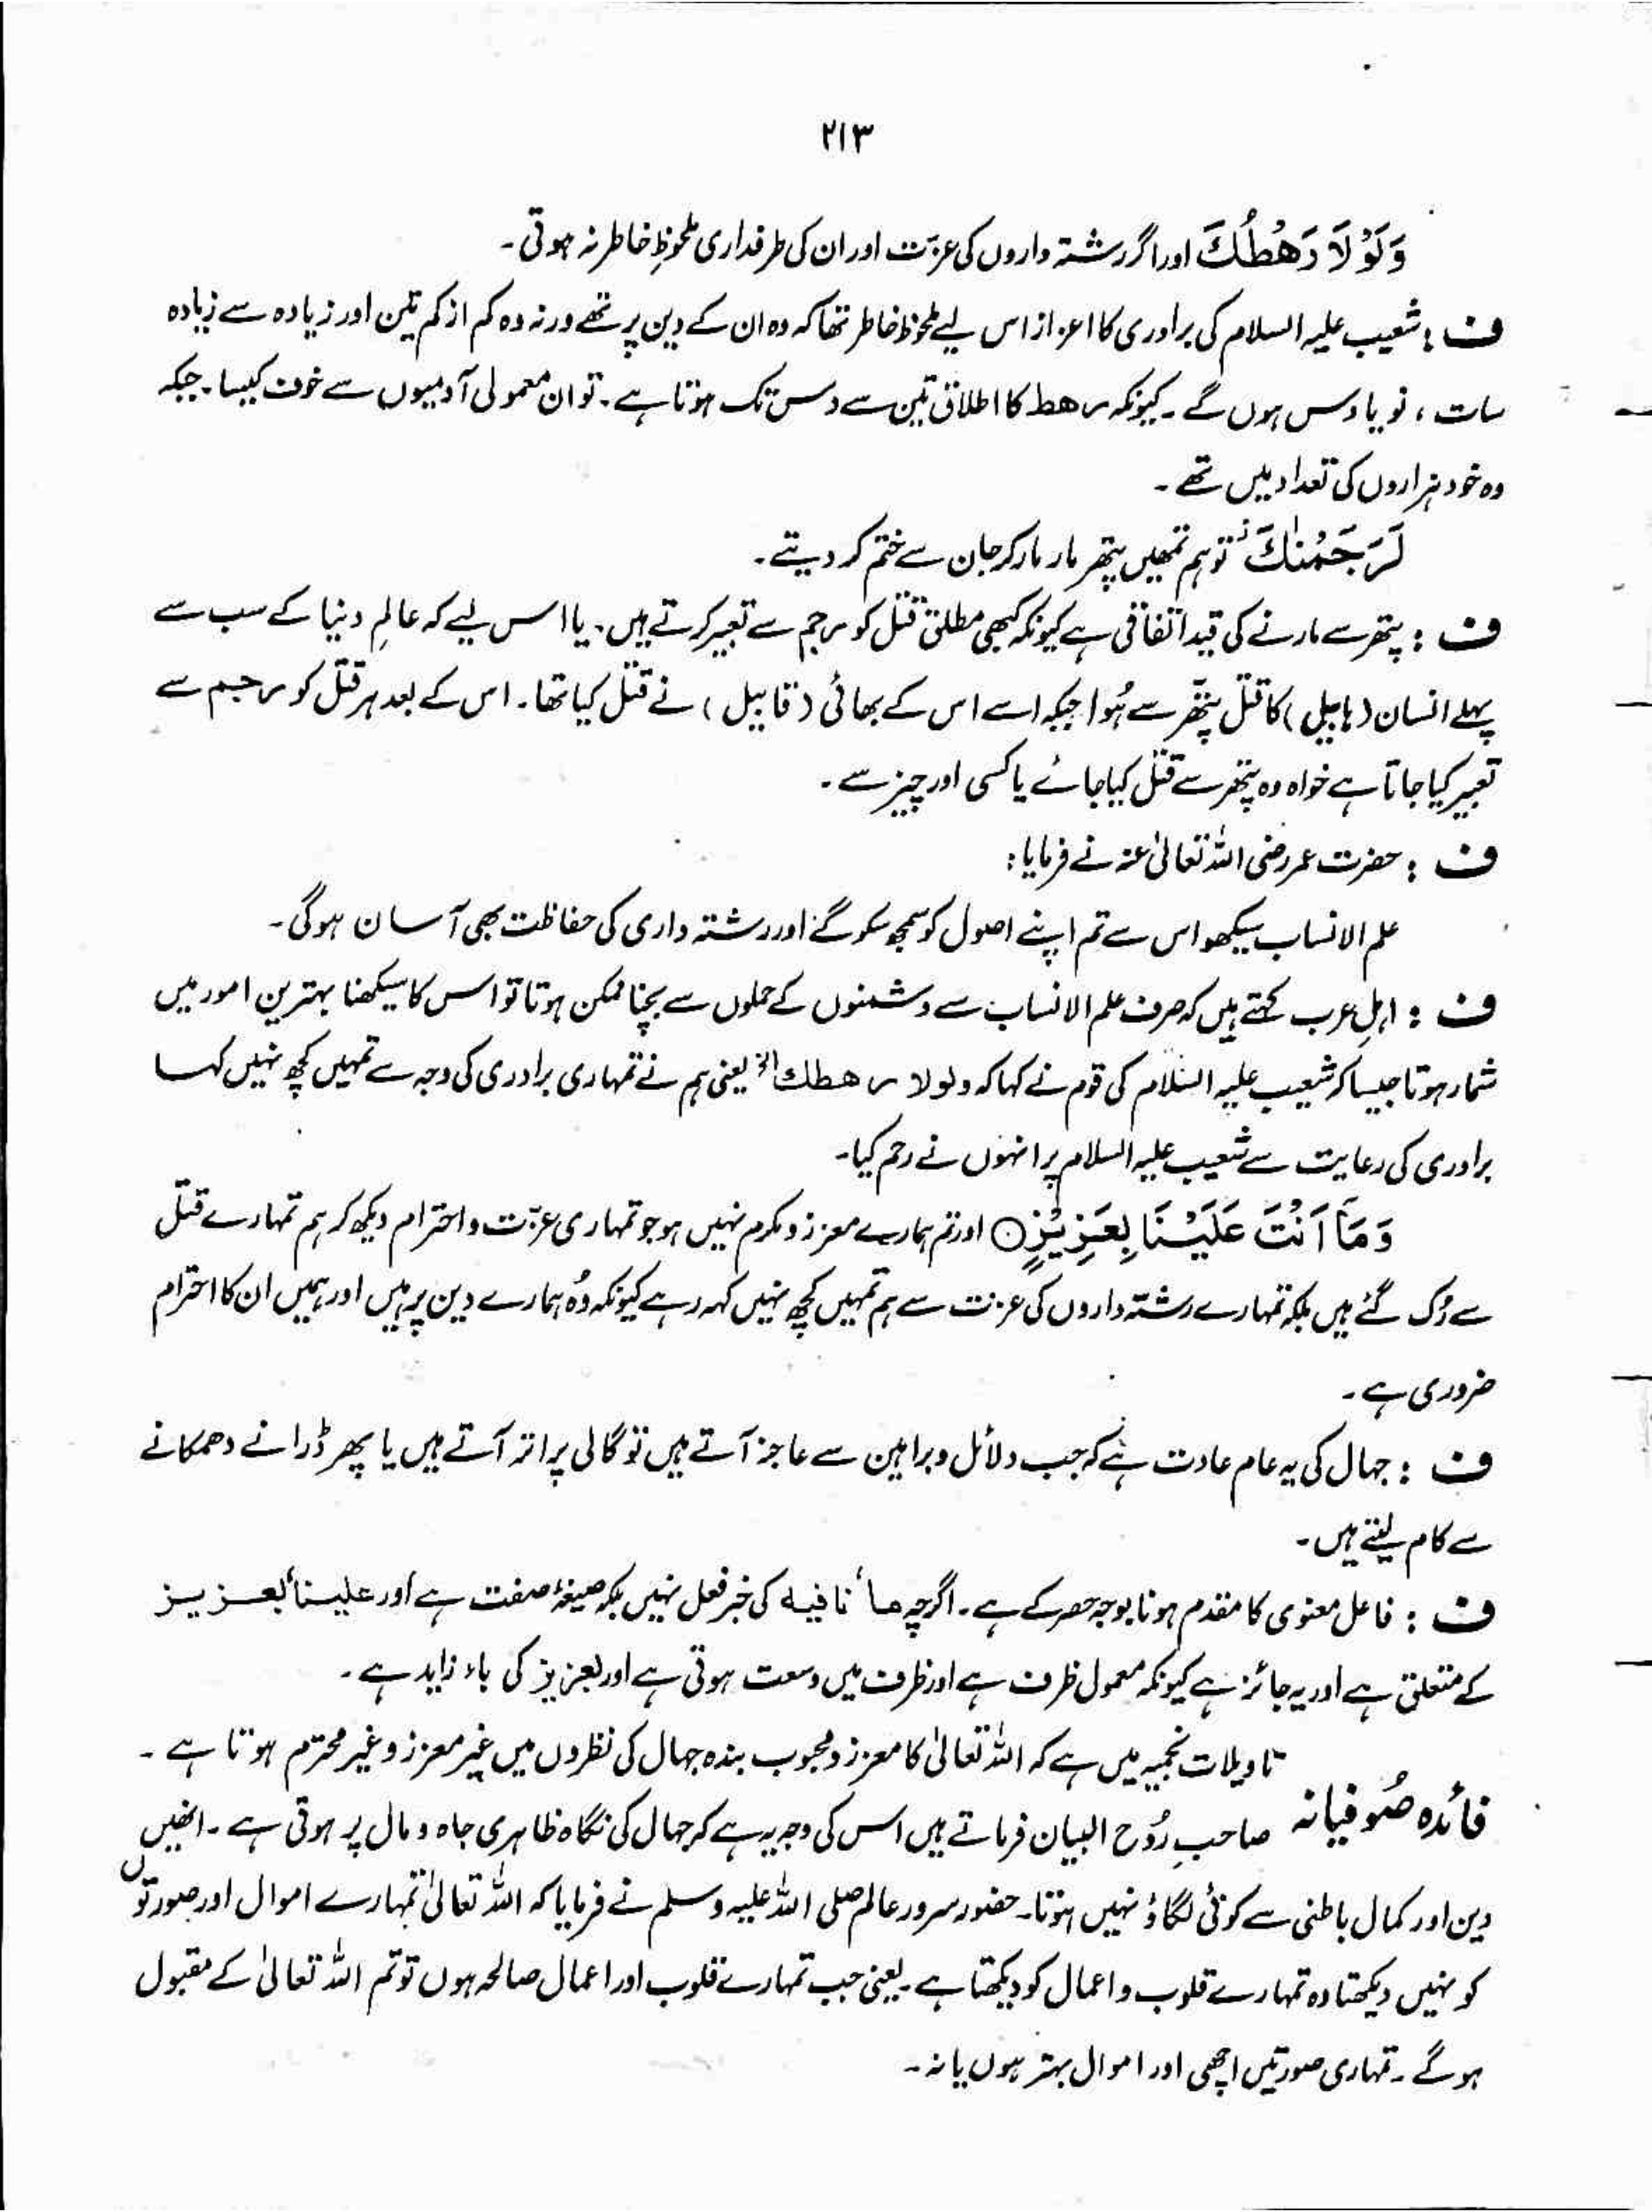 ۲۱۳
وَلَوْلَا رَهْطُكَ اور اگر رشتہ داروں کی عزّت اور ان کی طرفداری ملحوظِ خاطر نہ ہوتی۔
ف : شعیب علیہ السلام کی برادری کا اعزاز اس لیے ملحوظ خاطر تھا کہ وہ ان کے دین پر تھے ورنہ وہ کم از کم تین اور زیادہ سے زیادہ
سات ، نو یا دس ہوں گے۔ کیونکہ رهط کا اطلاق تین سے دس تک ہوتا ہے۔ تو ان معمولی آدمیوں سے خوف کیسا۔ جبکہ
وہ خود ہزاروں کی تعداد میں تھے۔
لَرَجَمْنٰكَ تو ہم تمھیں پتھر مار مار کر جان سے ختم کر دیتے۔
ف : پتھر سے مارنے کی قید اتفاقی ہے کیونکہ کبھی مطلق قتل کو رجم سے تعبیر کرتے ہیں۔ یا اس لیے کہ عالمِ دنیا کے سب سے
پہلے انسان (ہابیل) کا قتل پتّھر سے ہُوا جبکہ اسے اس کے بھائی (قابیل) نے قتل کیا تھا۔ اس کے بعد ہر قتل کو رجم سے
تعبیر کیا جاتا ہے خواہ وہ پتھر سے قتل کیا جائے یا کسی اور چیز سے۔
ف : حضرت عمر رضی اللہ تعالیٰ عنہ نے فرمایا :
علم الانساب سیکھو اس سے تم اپنے اصول کو سمجھ سکو گے اور رشتہ داری کی حفاظت بھی آسان ہو گی۔
ف : اہلِ عرب کہتے ہیں کہ صرف علم الانساب سے دشمنوں کے حملوں سے بچنا ممکن ہوتا تو اس کا سیکھنا بہترین امور میں
شمار ہوتا جیسا کہ شعیب علیہ السّلام کی قوم نے کہا کہ ولولا رهطك الخ یعنی ہم نے تمہاری برادری کی وجہ سے تمہیں کچھ نہیں کہا
برادری کی رعایت سے شعیب علیہ السلام پر انہوں نے رحم کیا۔
وَمَآ اَنْتَ عَلَيْنَا بِعَزِيْزٍ ○ اور تم ہمارے معزز و مکرم نہیں ہو جو تمہاری عزّت و احترام دیکھ کر ہم تمہارے قتل
سے رُک گئے ہیں بلکہ تمہارے رشتہ داروں کی عزت سے ہم تمہیں کچھ نہیں کہہ رہے کیونکہ وُہ ہمارے دین پر ہیں اور ہمیں ان کا احترام
ضروری ہے۔
ف : جہال کی یہ عام عادت ہے کہ جب دلائل و براہین سے عاجز آتے ہیں تو گالی پر اتر آتے ہیں یا پھر ڈرانے دھمکانے
سے کام لیتے ہیں۔
ف : فاعل معنوی کا مقدم ہونا بوجہ حصر کے ہے۔ اگرچہ ما نافیہ کی خبر فعل نہیں بلکہ صیغۂ صفت ہے اور علینا بعزیز
کے متعلق ہے اور یہ جائز ہے کیونکہ معمول ظرف ہے اور ظرف میں وسعت ہوتی ہے اور بعزیز کی باء زاید ہے۔
تاویلات نجمیہ میں ہے کہ اللہ تعالیٰ کا معزز و محبوب بندہ جہال کی نظروں میں غیر معزز و غیر محترم ہوتا ہے۔
فائدہ صُوفیانہ صاحبِ رُوح البیان فرماتے ہیں اس کی وجہ یہ ہے کہ جہال کی نگاہ ظاہری جاہ و مال پر ہوتی ہے۔ انھیں
دین اور کمال باطنی سے کوئی لگاؤ نہیں ہوتا۔ حضور سرور عالم صلی اللہ علیہ وسلم نے فرمایا کہ اللہ تعالیٰ تمہارے اموال اور صورتوں
کو نہیں دیکھتا وہ تمہارے قلوب و اعمال کو دیکھتا ہے۔ یعنی جب تمہارے قلوب اور اعمال صالحہ ہوں تو تم اللہ تعالیٰ کے مقبول
ہو گے۔ تمہاری صورتیں اچھی اور اموال بہتر ہوں یا نہ۔